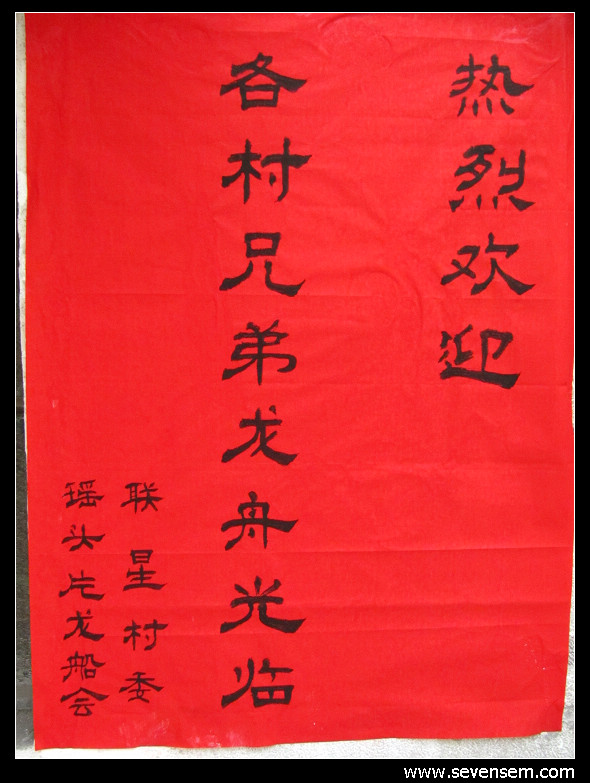 热烈欢迎
各村兄弟龙舟光临
联星村委
瑶头片龙船会
www.sevensem.com